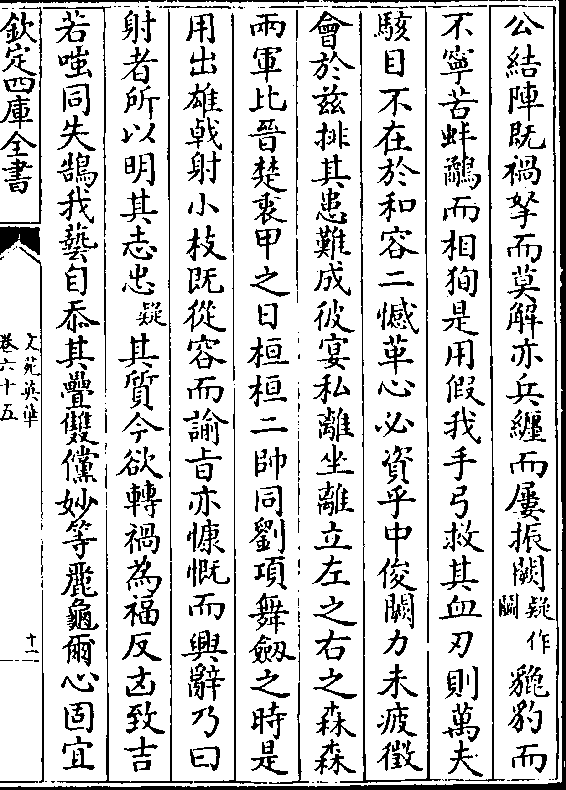 公結陣既禍拏而莫解亦兵纏而屢振闕疑作鬭貔豹而
不寧苦蚌鷸而相狥是用假我手弓救其血刃則萬夫
駭目不在於和容二憾革心必資乎中俊鬭力未疲徵
會於兹排其患難成彼宴私離坐離立左之右之森森
兩軍比晉楚裹甲之日桓桓二帥同劉項舞劔之時是
用出雄戟射小枝既從容而諭㫖亦慷慨而興辭乃曰
射者所以明其志忠疑其質今欲轉禍為福反凶致吉
若嗤同失鵠我藝自忝其疊雙儻妙等麗龜爾心固宜
欽定四庫全書
文苑英華
卷六十五
十一